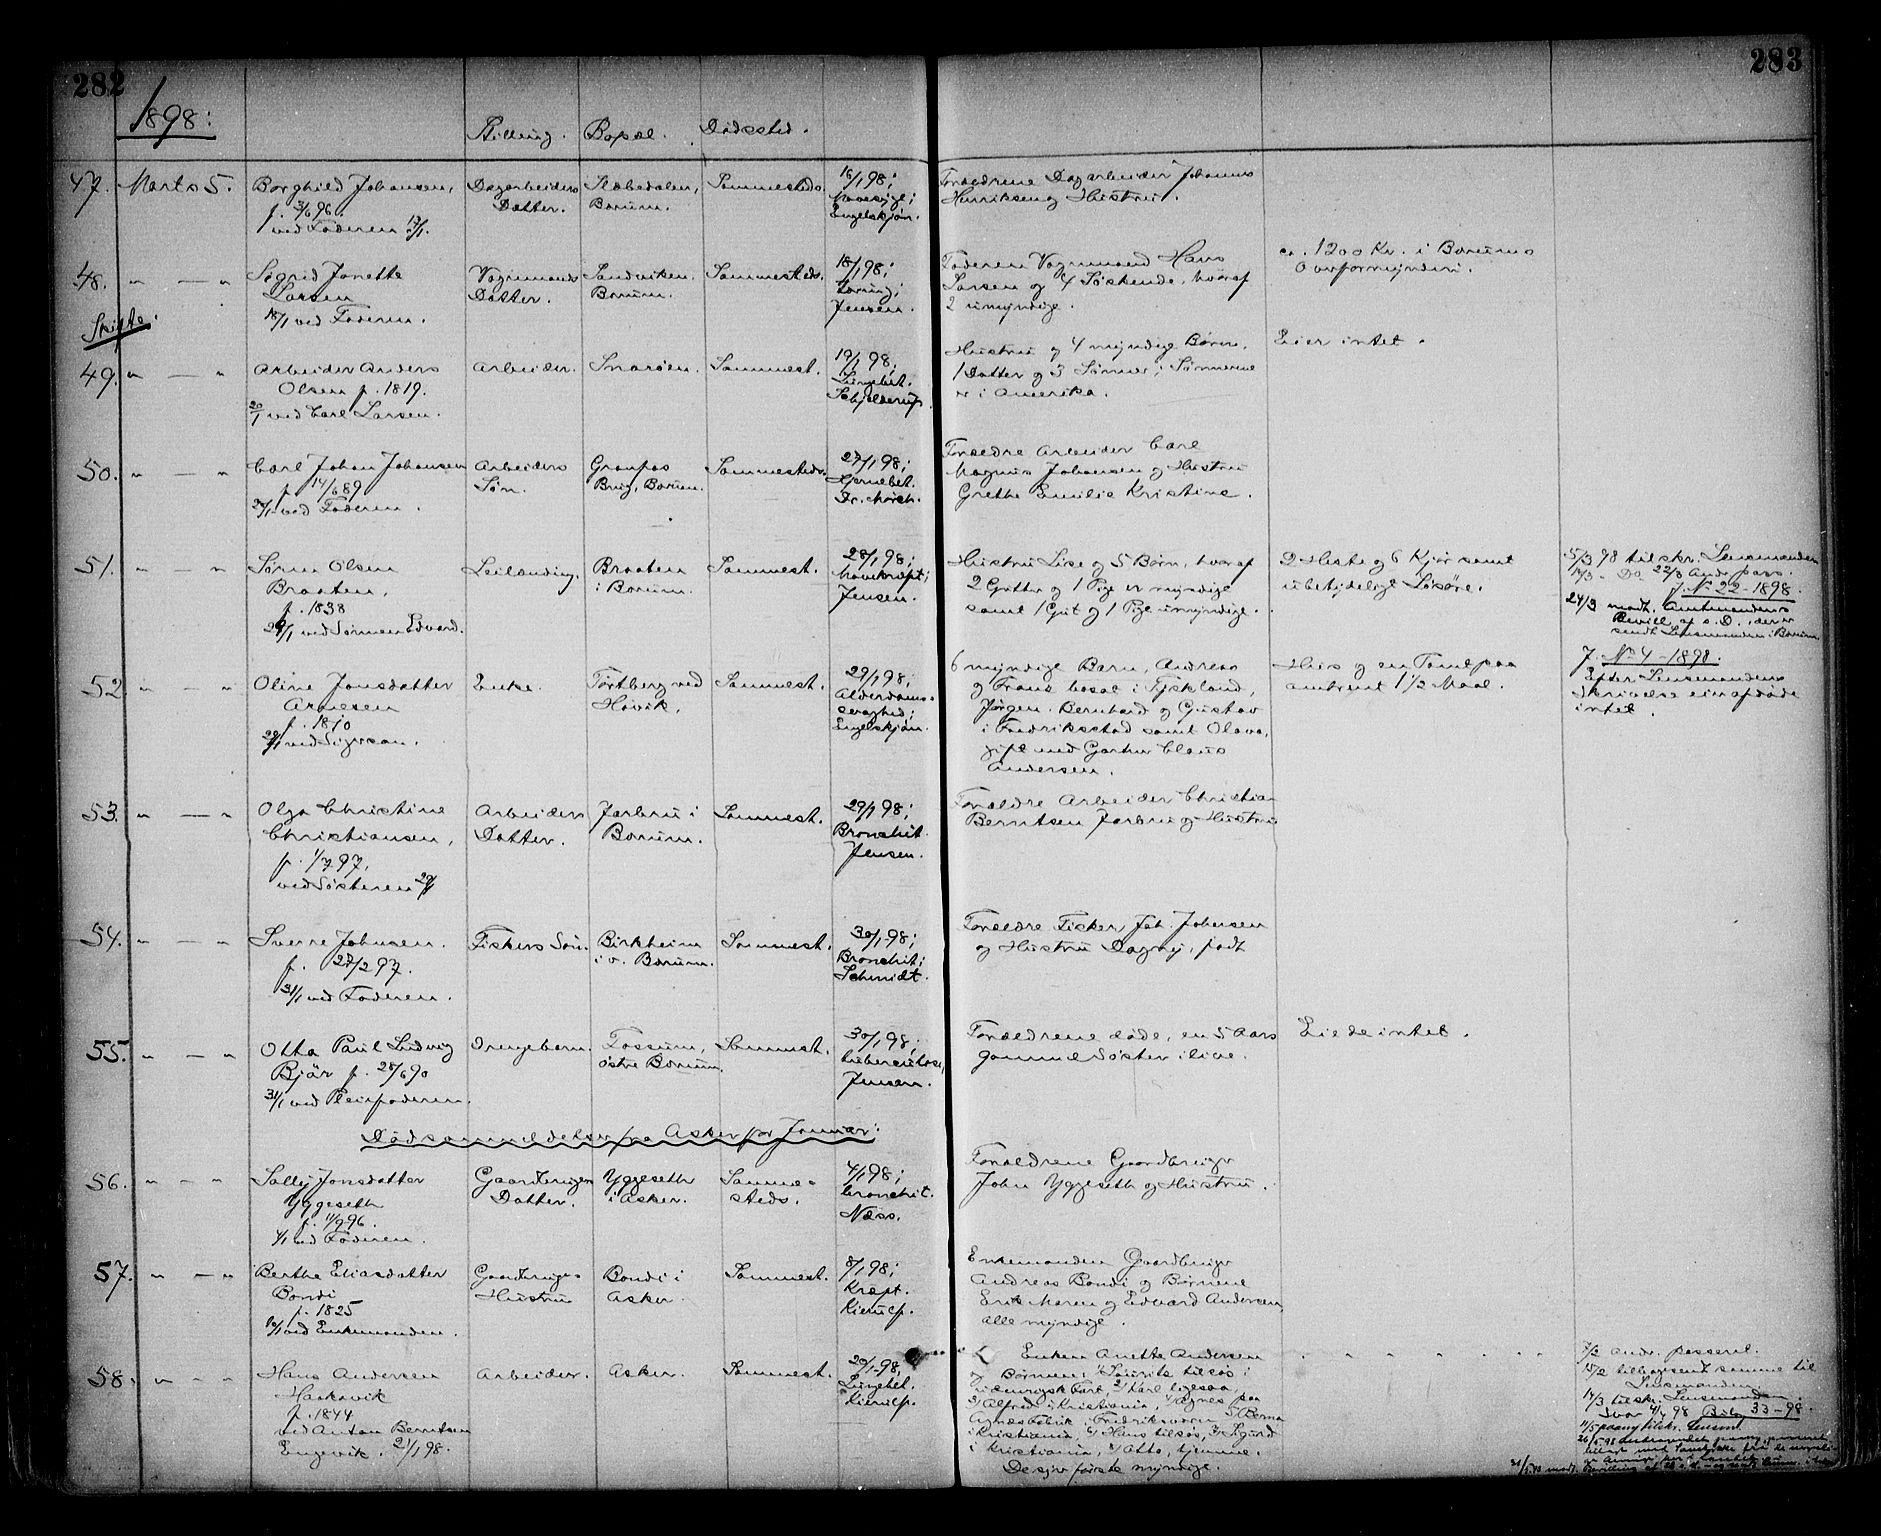 282
283
1898:
Stilling. Bopæl. Dødssted.
47. Marts 5. Borghild Johansen, Dagarbeiders Slæbedalen, Sammesteds. 16/1 98;
f. 3/6 96. Datter. Bærum.
ved Faderen 17/1. Engelskjøn.
Forældrene Dagarbeider Johannes
Henriksen og Hustru.
48. " — " Sigrid Janette Vognmands Sandviken Sammesteds. 18/1 98;
Larsen Datter. Bærum.
18/1 ved Faderen. Jensen.
Faderen Vognmand Hans
Larsen og 4 Søskende, hvoraf
2 umyndige.
ca. 1200 Kr. i Bærums
Overformynderi.
Skifte:
49. " — " Arbeider Anders Arbeider. Snarøen. Sammest. 19/1 98;
Olsen f. 1819. Lungebet.
20/1 ved Carl Larsen. Schjelderup.
Hustru og 4 myndige Børn,
1 Datter og 3 Sønner; Sønnerne
er i Amerika.
Eier intet.
50. " — " Carl Johan Johansen Arbeiders Granfos Sammesteds. 27/1 98;
f. 14/6 89 Søn. Brug, Bærum. Hjernebet.
ved Faderen. Dr. Mørch.
Forældre Arbeider Carl
Magnus Johansen og Hustru
Grethe Emilie Kristine.
51. " — " Søren Olsen Leilænding. Braaten Sammest. 28/1 98;
Braaten, i Bærum. Mavekræft;
f. 1838 Jensen.
29/1 ved Sønnen Edvard.
Hustru Lise og 5 Børn, hvoraf
2 Gutter og 1 Pige er myndige
samt 1 Gut og 1 Pige umyndige.
2 Heste og 6 Kjør samt
ubetydeligt Løsøre.
5/3 98 tilskr. Lensmanden
17/3 - Do 22/3 Andr. pass.
J. No 22 - 1898.
24/3 modt. Amtmandens
Bevill. af s. D., der er
sendt Lensmanden i Bærum
52 " — " Oline Jonsdatter Enke. Tørtberg ved Sammest. 29/1 98;
Arnesen Høvik. Alderdoms-
f. 1810 svaghed;
29/1 ved Engelskjøn.
6 myndige Børn, Andreas
og Frans bosat i Tyskland,
Jørgen. Bernhard og Gustav
i Fredriksstad samt Olava,
gift med Gartner Claus
Andersen.
Hus og en Tomt paa
omtrent 1 1/2 Maal.
J. No 4 - 1898.
Efter Lensmandens
Skrivelse eier afdøde
intet.
53. " — " Olga Christine Arbeiders Jarbru i Sammest. 29/1 98;
Christiansen, Datter. Bærum. Bronchit.
f. 1/7 97, Jensen.
ved Søsteren 29/1
Forældre Arbeider Christian
Berntsen Jarbru og Hustru
54. " — " Sverre Johnsen. Fiskers Søn. Birkheim Sammest. 30/1 98;
f. 27/2 97. i v. Bærum. Bronchit;
31/1 ved Faderen. Schmidt.
Forældre Fisker, Joh. Johnsen
og Hustru Dagny, født
55. " — " Otto Paul Ludvig Drengebarn. Fossum, Sammest. 30/1 98;
Bjär f. 28/6 90 østre Bærum. tuberculose,
31/1 ved Pleiefaderen. Jensen.
Forældrene døde, en 5 Aars
gammel Søster i live.
Eiede intet.
Dødsanmeldelser fra Asker for Januar:
56. " — " Sally Jonsdatter Gaardbruger Yggeseth Samme- 4/1 98;
Yggeseth Datter. i Asker. steds. bronchit.
f. 11/9 96. Næss.
ved Faderen.
Forældrene Gaardbruger
John Yggeseth og Hustru.
57. " — " Berthe Eliasdatter Gaardbruger- Bondi i Sammest. 8/1 98;
Bondi Hustru Asker. Kræft.
f. 1825 Kierulf.
10/1 ved Enkemanden.
Enkemanden Gaardbruger
Andreas Bondi og Børnene
Erik Maren og Edvard Andersen,
alle myndige.
58. " — " Hans Andersen Arbeider. Asker. Sammest. 20/1 98,
Haskavik Lungebet.
f. 1844 Kierulf.
ved Anton Berntsen
Engevik. 21/1 98.
Enken Anette Andersen
og Børnene: 1) Laurits tilsøs i
udenrigsk Fart, 2) Karl ligesaa,
3) Alfred i Kristiania, 4) Agnes paa
i Fredriksværn 5) Berna
i Kristiania, 6) Hans tilsøs, 7) Sigurd
i Kristiania, 8) Otto, hjemme.
De syv første myndige.
7/2 andr. passeret.
15/2 tilbagesendt samme til
Lensmanden.
17/3 tilskr. Lensmanden.
Svar 4/4 98 Bil. 33-98.
11/5 paany tilskr. Lensm.